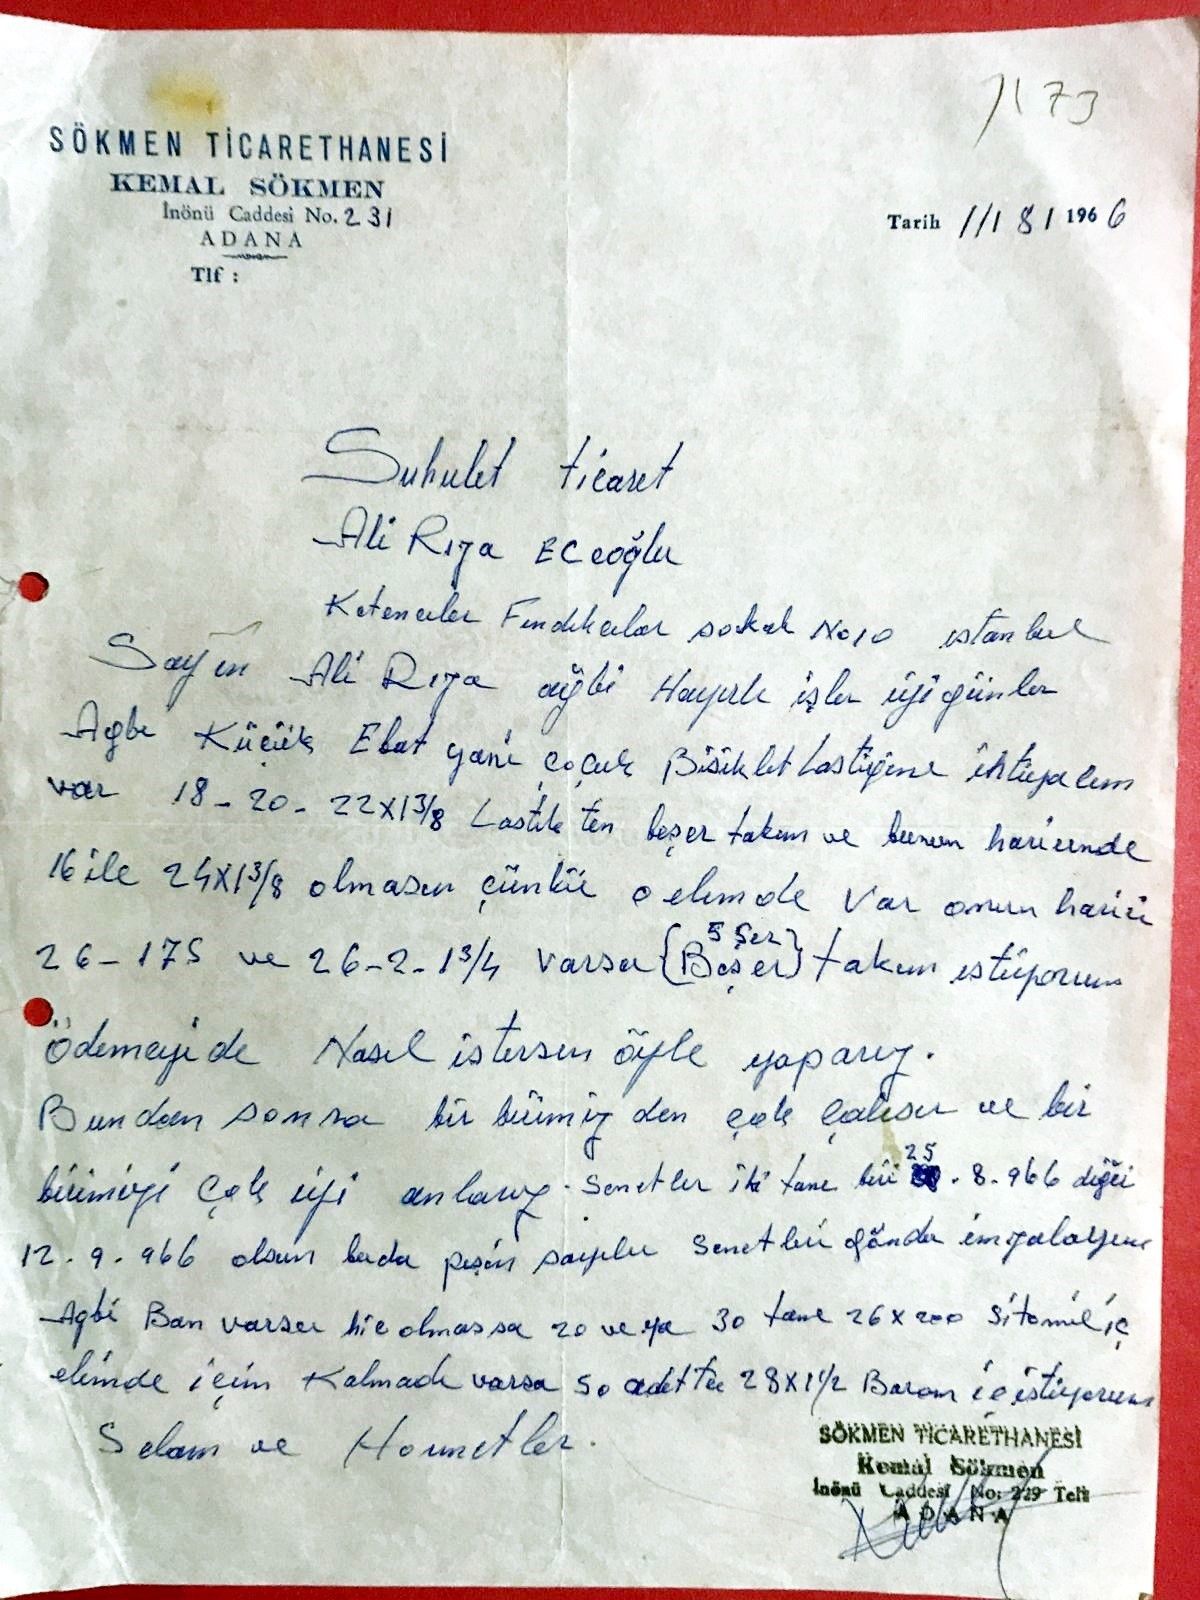 1173
SÖKMEN TİCARETHANESİ
KEMAL SÖKMEN
İnönü Caddesi No. 231
ADANA
Tlf :
Tarih 11/8/1966
Suhulet ticaret
Ali Rıza ECeoğlu
Ketenciler Fındıkcılar sokak No 10 istanbul
Sayın Ali Rıza ağbi Hayırlı işler iyi günler
Agbi Küçük Ebat yani çocuk Bisiklet Lastiğine ihtiyacım
var 18-20-22x1 3/8 Lastikten beşer takım ve bunun haricinde
16 ile 24x1 3/8 olmasın çünkü o elimde var onun harici
26-175 ve 26-2-1 3/4 varsa {Beşer} 5 şer takım istiyorum
Ödemeyide Nasıl istersen öyle yaparız.
Bundan sonra bir birimizden çok çalışır ve bir
birimizi çok iyi anlarız. Senetler iki tane biri 25.8.966 diğeri
12.9.966 olsun buda peşin sayılır Senetleri gönder imzalayım
Agbi varsa hiç olmassa 20 veya 30 tane 26x200 iç
elimde içim Kalmadı varsa 50 adette 28x1 1/2 iç istiyorum
Selam ve Hormetler.
SÖKMEN TİCARETHANESİ
Kemal Sökmen
İnönü Caddesi No: 229 Telf
ADANA